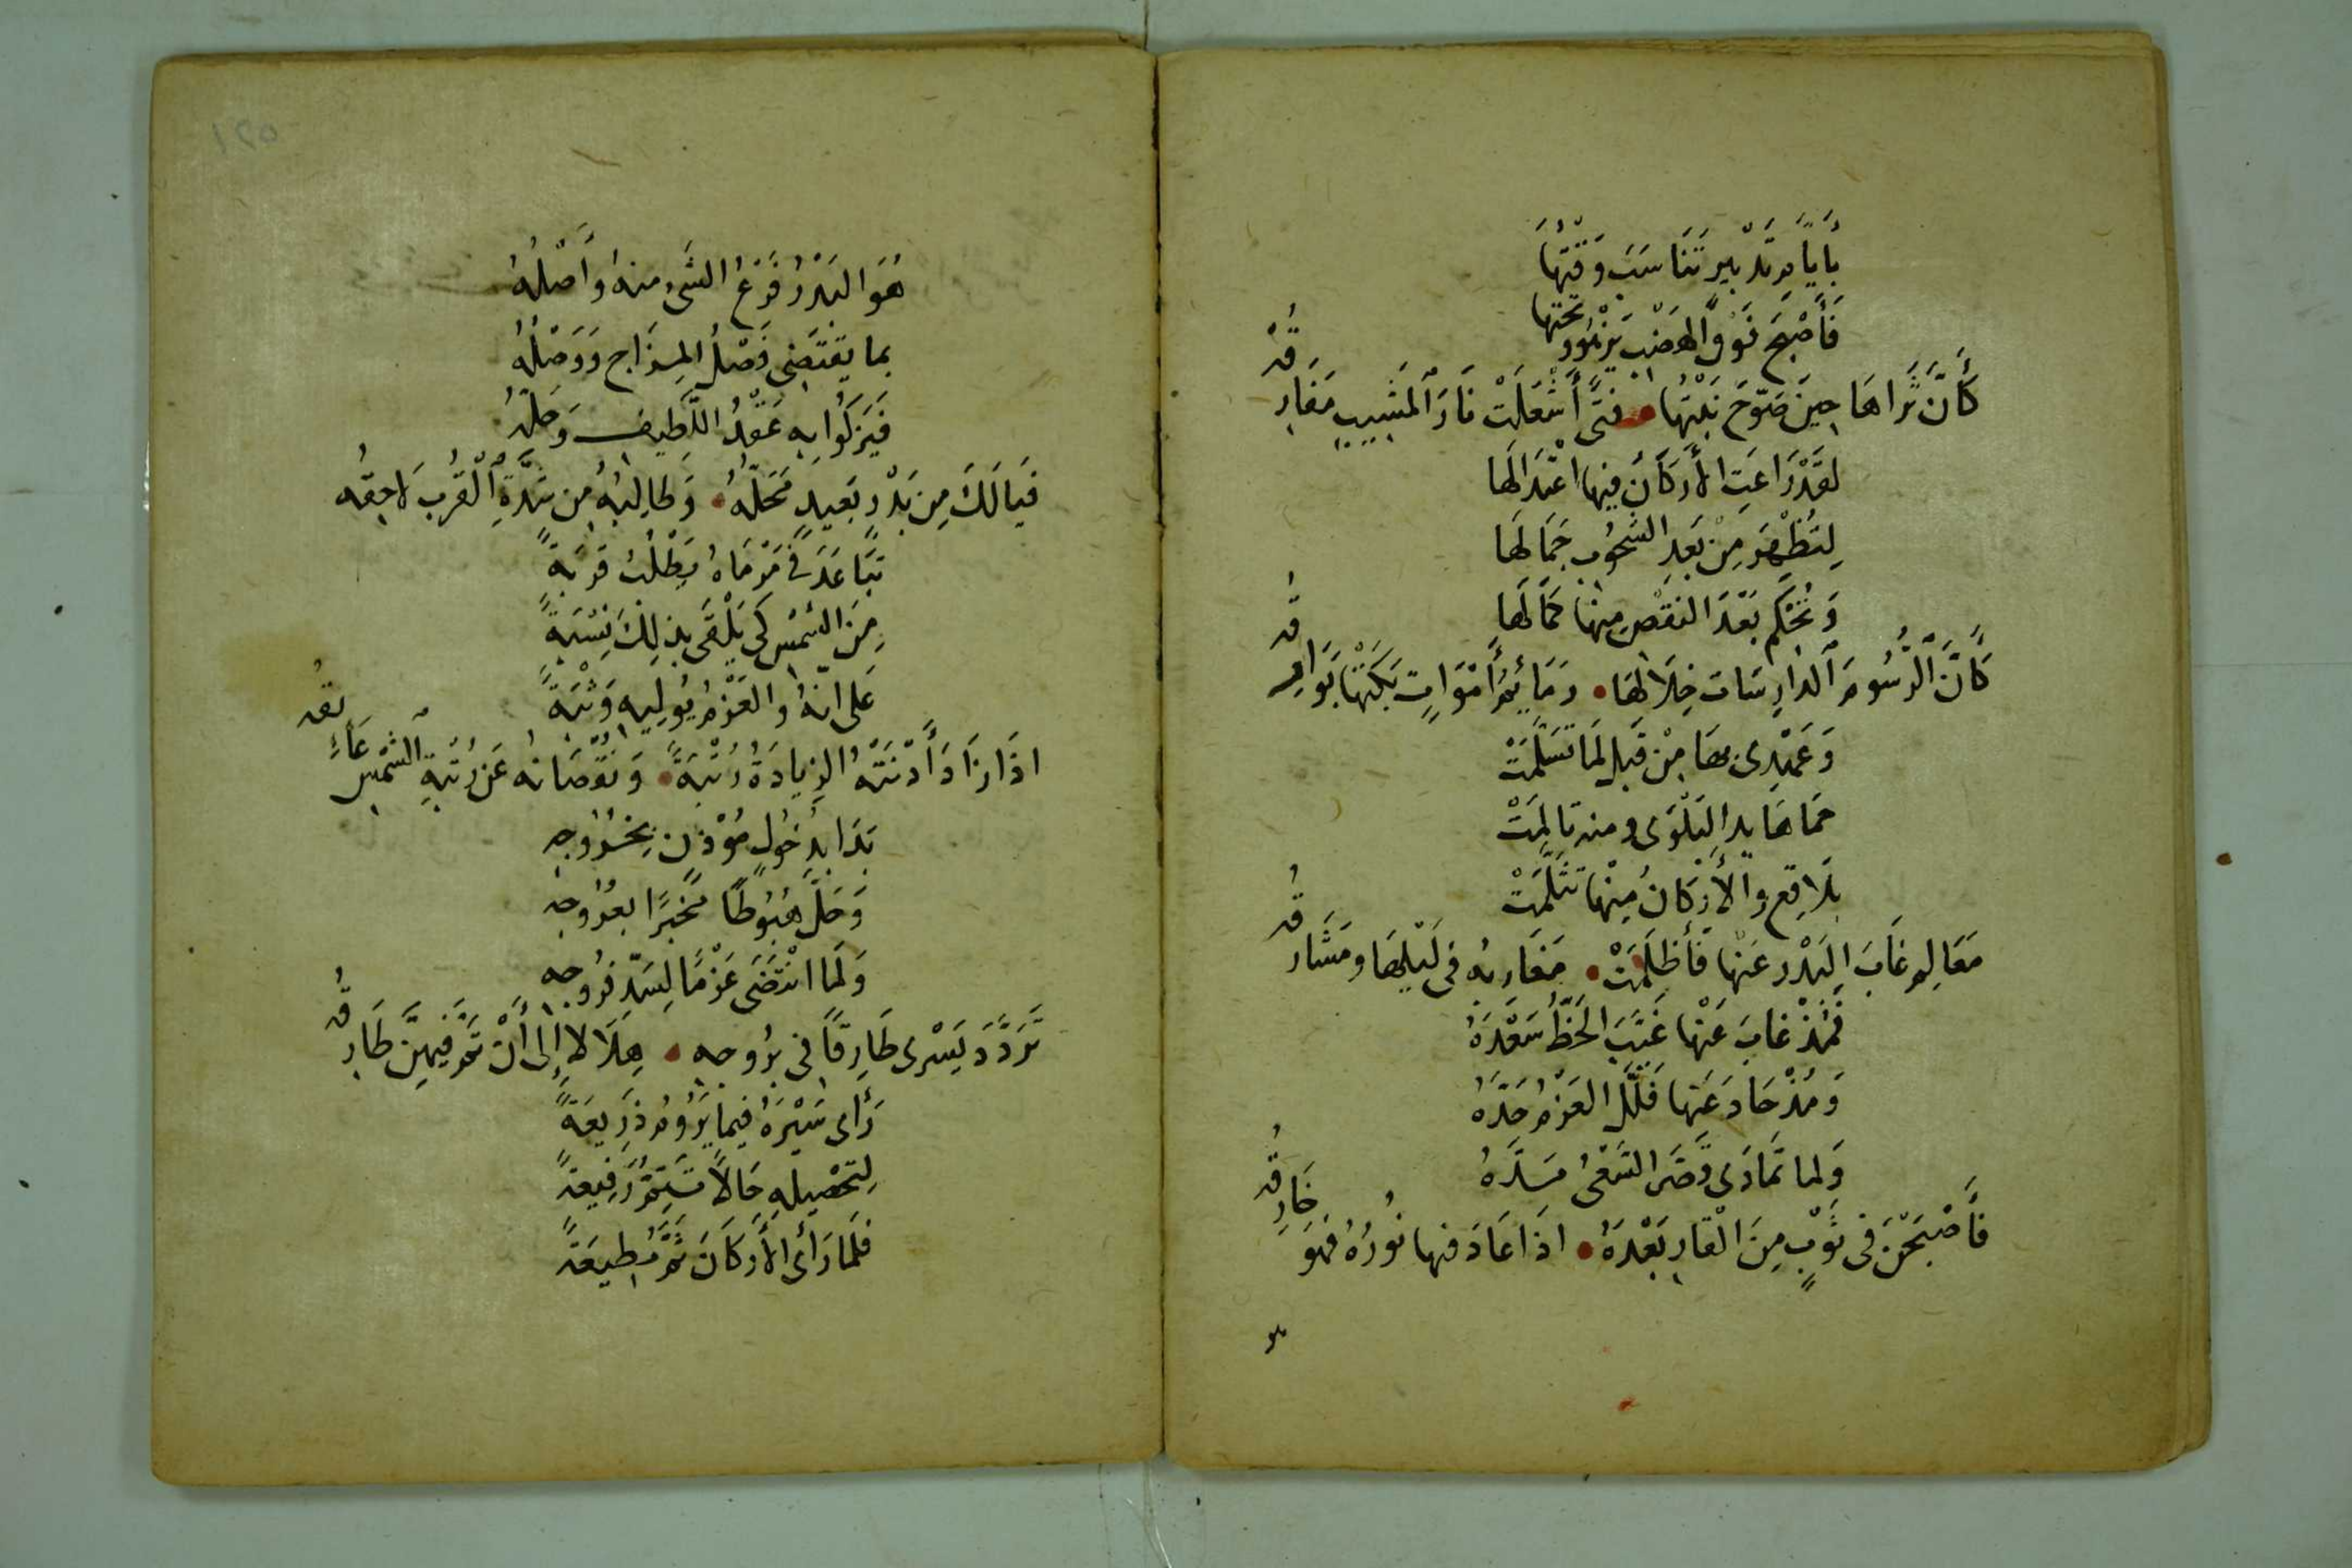 بأيام تدبير تناسب وقتها
فأصبح فوق الهضب يزهو وتحتها
كأن ثراها حين صوّح نبتها • فتى أشعلت نار المشيب مفارقه
لقد راعت الأركان فيها اعتدالها
لتظهر من بعد الشحوب جمالها
وتحكم بعد النقص منها كمالها
كأن الرسوم الدارسات خلالها • رمائم أموات بكتها بوارقه
وعهدي بها من قبل لما تسلمت
حماها يد البلوى ومنه تالمت
بلاقع والأركان منها تثلمت
معالم غاب البدر عنها فأظلمت • مغاربه في ليلها ومشارقه
فمذ غاب عنها غيّب الحظ سعده
ومذ حاد عنها فلّل العزم حدّه
ولما تمادى قصّر السعي مدّه
فأصبحن في ثوب من القار بعده • اذا عاد فيها نوره فهو خارقه
هو
١٢٥
هو البدر فرع الشيء منه وأصله
بما يقتضي فصل المزاج ووصله
فيزكوا به عقد اللطيف وحلّه
فيالك من بدر بعيد محلّه • وطالبه من شدّة القرب لاحقه
تباعد في مرماه يطلب قربة
من الشمس كي يلقى بذلك نسبة
على انه والعزم يوليه وثبة
اذا زاد أدنته الزيادة رتبة • ونقصانه عن رتبة الشمس عائقه
بدا بدخول مؤذن بخروجه
وحلّ هبوطًا مخبرًا بعروجه
ولما انتضى عزمًا لسد فروجه
تردّد يسري طارقًا في بروجه • هلالا إلى أن تم فيهن طارقه
رأى سيره فيما يروم ذريعة
لتحصيله حالًا تستمر رفيعة
فلما رأى الأركان ثم مطيعة